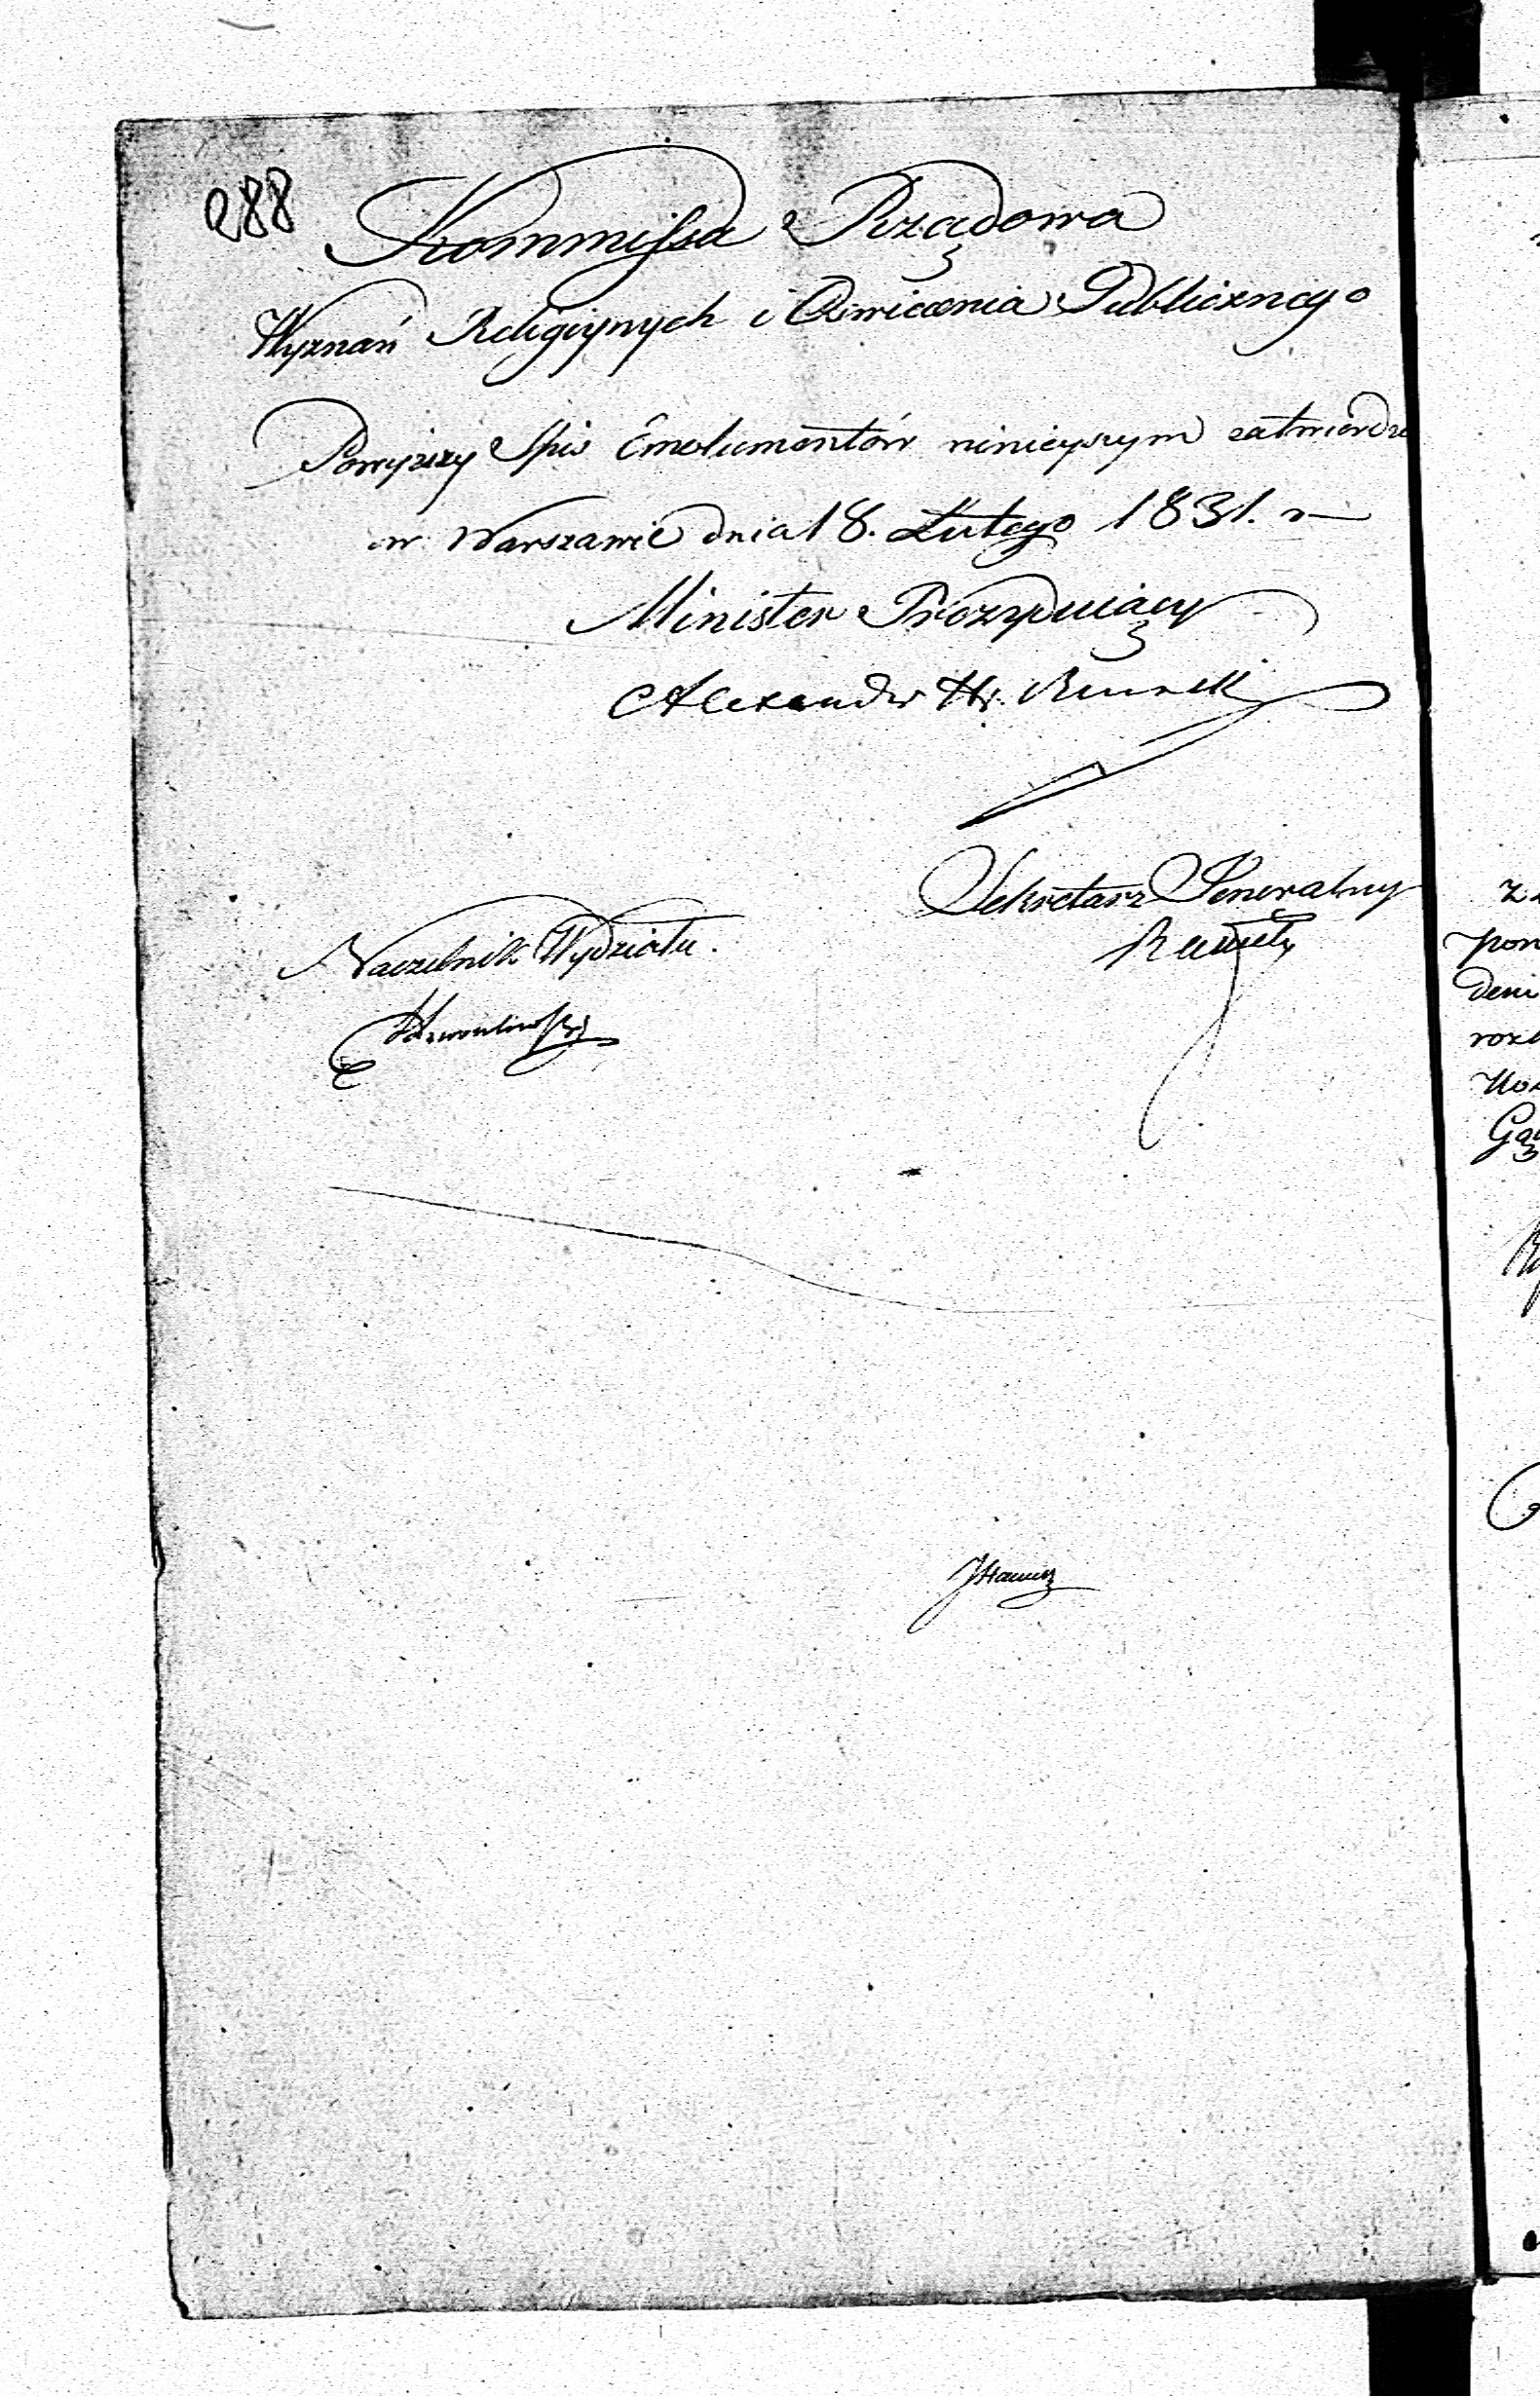 288
Kommissa Rządowa
Wyznań Religiynych i Oświecenia Publicznego
Powyższy Spis Emolumentów ninieyszym zatwierdza
w Warszawie dnia 18. Lutego 1831. r
Minister Prezyduiący
Alexander Hr.
Sekretarz Generalny
Naczelnik Wydziału.